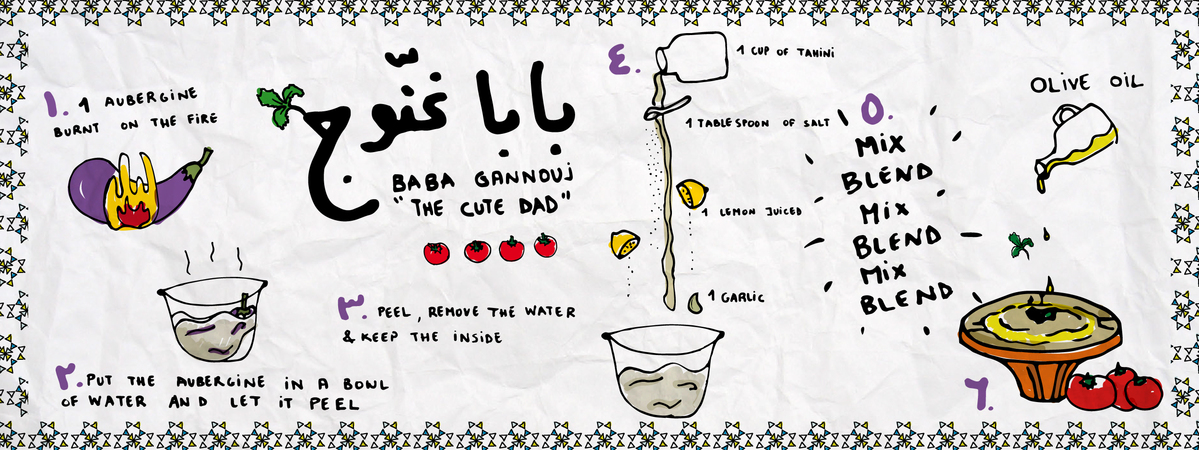 بابا غنّوج
BABA GANNOUJ
"THE CUTE DAD"
١. 1 AUBERGINE
BURNT ON THE FIRE
٢. PUT THE AUBERGINE IN A BOWL
OF WATER AND LET IT PEEL
٣. PEEL, REMOVE THE WATER
& KEEP THE INSIDE
٤.
1 CUP OF TAHINI
1 TABLE SPOON OF SALT
1 LEMON JUICED
1 GARLIC
٥.
MIX
BLEND
MIX
BLEND
MIX
BLEND
OLIVE OIL
٦.